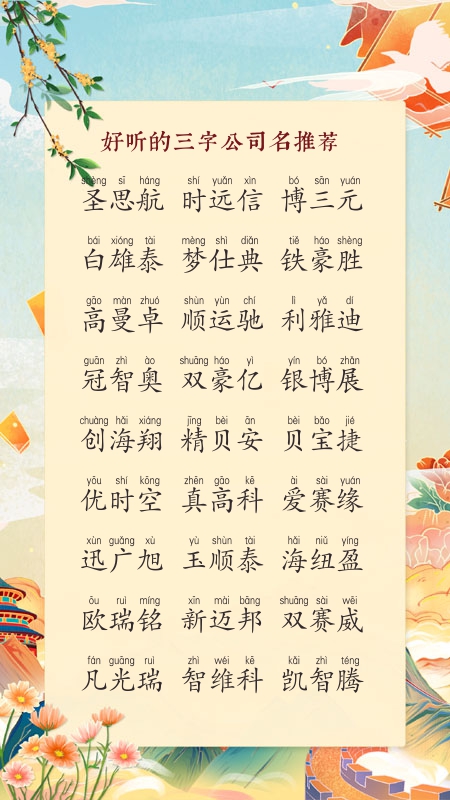 好听的三字公司名推荐
shèng sī háng shí yuǎn xìn bó sān yuán
圣思航 时远信 博三元
bái xióng tài mèng shì diǎn tiě háo shèng
白雄泰 梦仕典 铁豪胜
gāo màn zhuó shùn yùn chí lì yǎ dí
高曼卓 顺运驰 利雅迪
guān zhì ào shuāng háo yì yín bó zhǎn
冠智奥 双豪亿 银博展
chuàng hǎi xiáng jīng bèi ān bèi bǎo jié
创海翔 精贝安 贝宝捷
yōu shí kōng zhēn gāo kē ài sài yuán
优时空 真高科 爱赛缘
xùn guǎng xù yù shùn tài hǎi niǔ yíng
迅广旭 玉顺泰 海纽盈
ōu ruì míng xīn mài bāng shuāng sài wēi
欧瑞铭 新迈邦 双赛威
fán guāng ruì zhì wéi kē kǎi zhì téng
凡光瑞 智维科 凯智腾